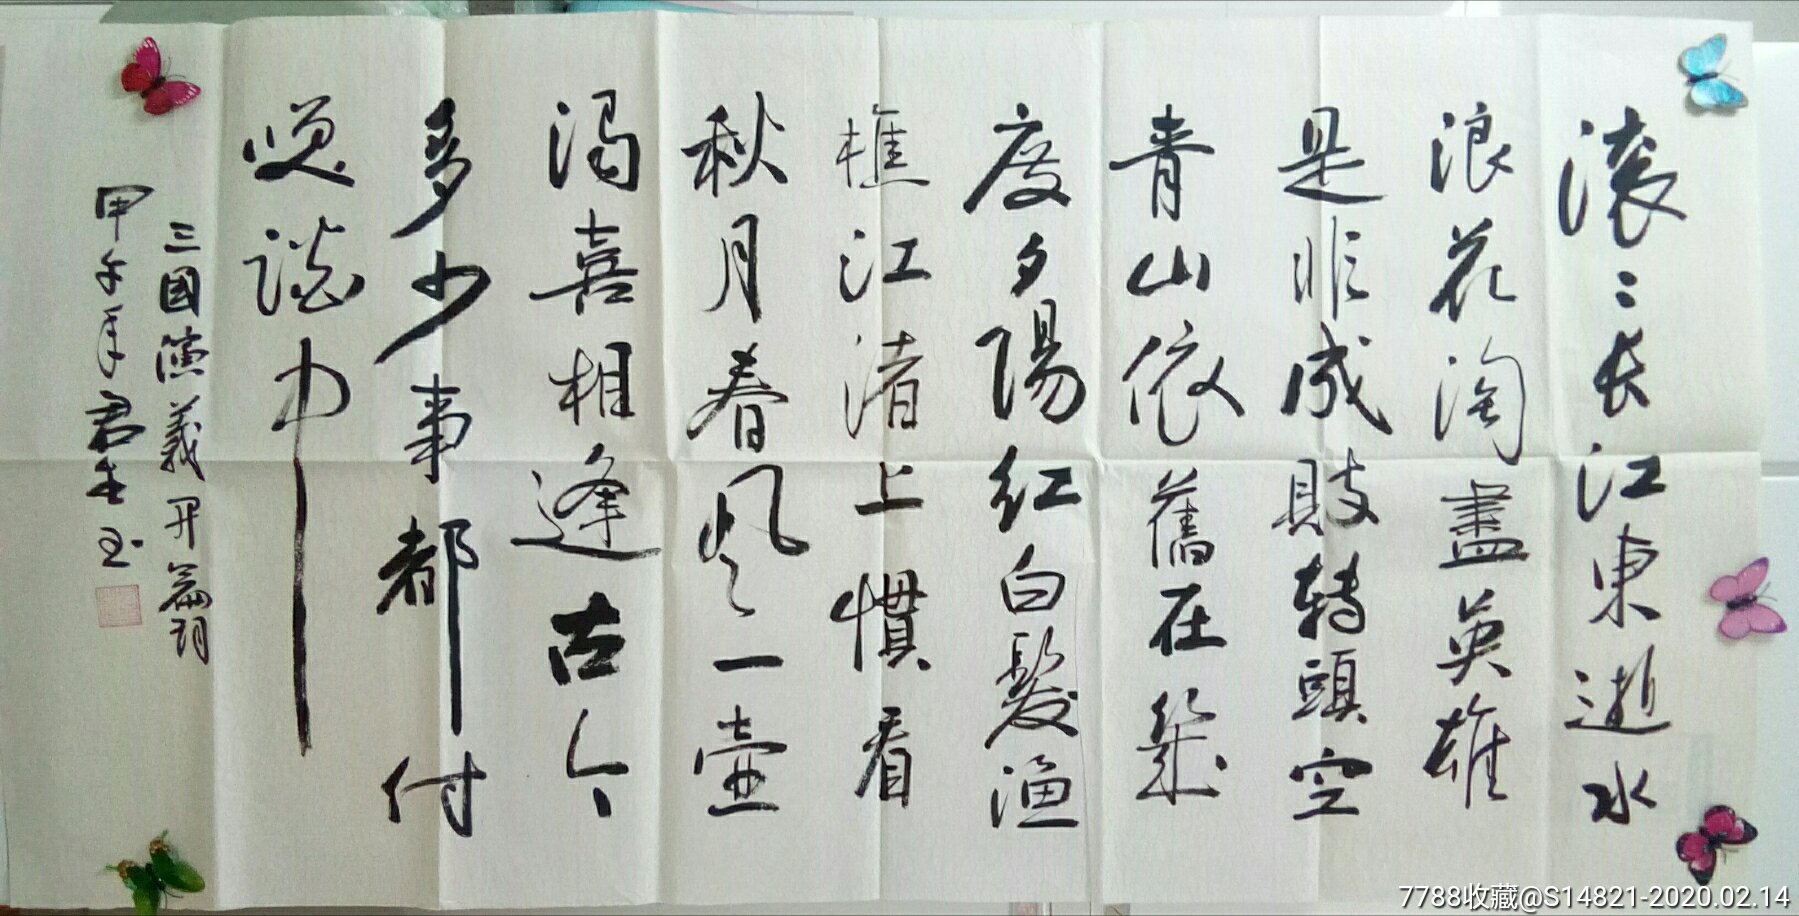 滚〻长江東逝水
浪花淘盡英雄
是非成敗转頭空
青山依舊在幾
度夕陽红白髮渔
樵江渚上慣看
秋月春风一壺
濁喜相逢古今
多少事都付
笑谈中
三國演義开篇词
甲午年君生书
7788收藏@S14821-2020.02.14